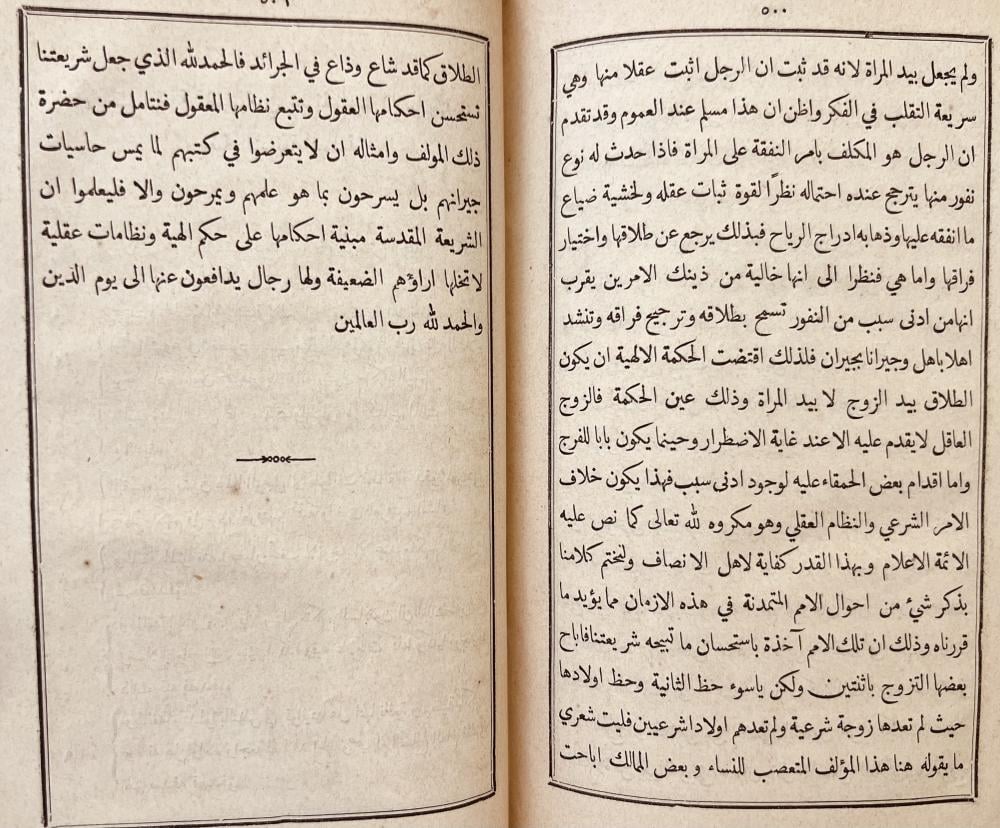 ٥٠٠
ولم يجعل بيد المراة لانه قد ثبت ان الرجل اثبت عقلا منها وهي
سريعة التقلب في الفكر واظن ان هذا مسلم عند العموم وقد تقدم
ان الرجل هو المكلف بامر النفقة على المراة فاذا حدث له نوع
نفور منها يترجح عنده احتماله نظرًا لقوة ثبات عقله ولخشية ضياع
ما انفقه عليها وذهابه ادراج الرياح فبذلك يرجع عن طلاقها واختيار
فراقها واما هي فنظرا الى انها خالية من ذينك الامرين يقرب
انها من ادنى سبب من النفور تسمح بطلاقه وترجيح فراقه وتنشد
اهلا باهل وجيرانا بجيران فلذلك اقتضت الحكمة الالهية ان يكون
الطلاق بيد الزوج لا بيد المراة وذلك عين الحكمة فالزوج
العاقل لا يقدم عليه الا عند غاية الاضطرار وحينما يكون بابا للفرج
واما اقدام بعض الحمقاء عليه لوجود ادنى سبب فهذا يكون خلاف
الامر الشرعي والنظام العقلي وهو مكروه لله تعالى كما نص عليه
الائمة الاعلام وبهذا القدر كفاية لاهل الانصاف ولنختم كلامنا
بذكر شيء من احوال الامم المتمدنة في هذه الازمان مما يؤيد ما
قررناه وذلك ان تلك الامم آخذة باستحسان ما تبيحه شريعتنا فاباح
بعضها التزوج باثنتين ولكن ياسوء حظ الثانية وحظ اولادها
حيث لم تعدها زوجة شرعية ولم تعدهم اولادا شرعيين فليت شعري
ما يقوله هنا هذا المؤلف المتعصب للنساء وبعض الممالك اباحت
٥٠١
الطلاق كما قد شاع وذاع في الجرائد فالحمد لله الذي جعل شريعتنا
تستحسن احكامها العقول وتتبع نظامها المعقول فنتامل من حضرة
ذلك المولف وامثاله ان لا يتعرضوا في كتبهم لما يمس حاسيات
جيرانهم بل يسرحون بما هو علمهم ويمرحون والا فليعلموا ان
الشريعة المقدسة مبنية احكامها على حكم الهية ونظامات عقلية
لا تخلها اراؤهم الضعيفة ولها رجال يدافعون عنها الى يوم الدين
والحمد لله رب العالمين